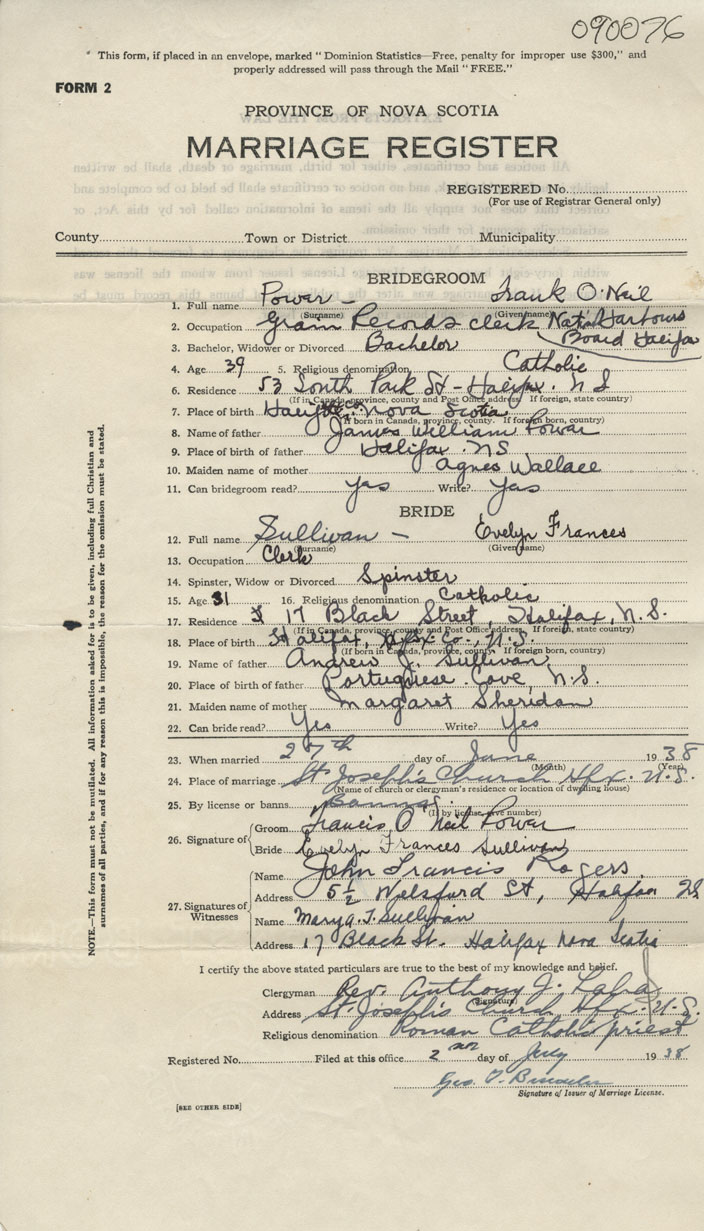 090076
" This form, if placed in an envelope, marked " Dominion Statistics—Free, penalty for improper use $300," and
properly addressed will pass through the Mail " FREE."
FORM 2
PROVINCE OF NOVA SCOTIA
MARRIAGE REGISTER
REGISTERED No.
(For use of Registrar General only)
County Town or District Municipality
BRIDEGROOM
1. Full name Power - Frank O'Neil
(Surname) (Given name)
2. Occupation Grain Records clerk Nat'l Harbours
Board Halifax
3. Bachelor, Widower or Divorced Bachelor
4. Age 39 5. Religious denomination Catholic
6. Residence 53 South Park St - Halifax. N S
(If in Canada, province, county and Post Office address. If foreign, state country)
7. Place of birth Halifax Nova Scotia
(If born in Canada, province, county. If foreign born, country)
8. Name of father James William Power
9. Place of birth of father Halifax. NS
10. Maiden name of mother Agnes Wallace
11. Can bridegroom read? Yes Write? Yes
BRIDE
12. Full name Sullivan - Evelyn Frances
(Surname) (Given name)
13. Occupation Clerk
14. Spinster, Widow or Divorced Spinster
15. Age 31 16. Religious denomination Catholic
17. Residence 17 Black Street, Halifax, N.S.
(If in Canada, province, county and Post Office address. If foreign, state country)
18. Place of birth Halifax, Hfx. Co., N.S.
(If born in Canada, province, county. If foreign born, country)
19. Name of father Andrew J. Sullivan
20. Place of birth of father Portuguese Cove, N.S.
21. Maiden name of mother Margaret Sheridan
22. Can bride read? Yes Write? Yes
23. When married 27th day of June 1938
(Month) (Year)
24. Place of marriage St Joseph's Church Hfx. N.S.
(Name of church or clergyman's residence or location of dwelling house)
25. By license or banns Banns
(If by license, give number)
26. Signature of Groom Francis O'Neil Power
Bride Evelyn Frances Sullivan
27. Signatures of Witnesses Name John Francis Rogers
Address 5½ Welsford St, Halifax NS
Name Mary A. T. Sullivan
Address 17 Black St. Halifax Nova Scotia
I certify the above stated particulars are true to the best of my knowledge and belief.
Clergyman Rev. Anthony J.
(Signature)
Address St. Joseph's Church Hfx. N.S.
Religious denomination Roman Catholic priest
Registered No. Filed at this office 2 day of July 1938
Geo.
Signature of Issuer of Marriage License.
[SEE OTHER SIDE]
NOTE.—This form must not be mutilated. All information asked for is to be given, including full Christian and
surnames of all parties, and if for any reason this is impossible, the reason for the omission must be stated.